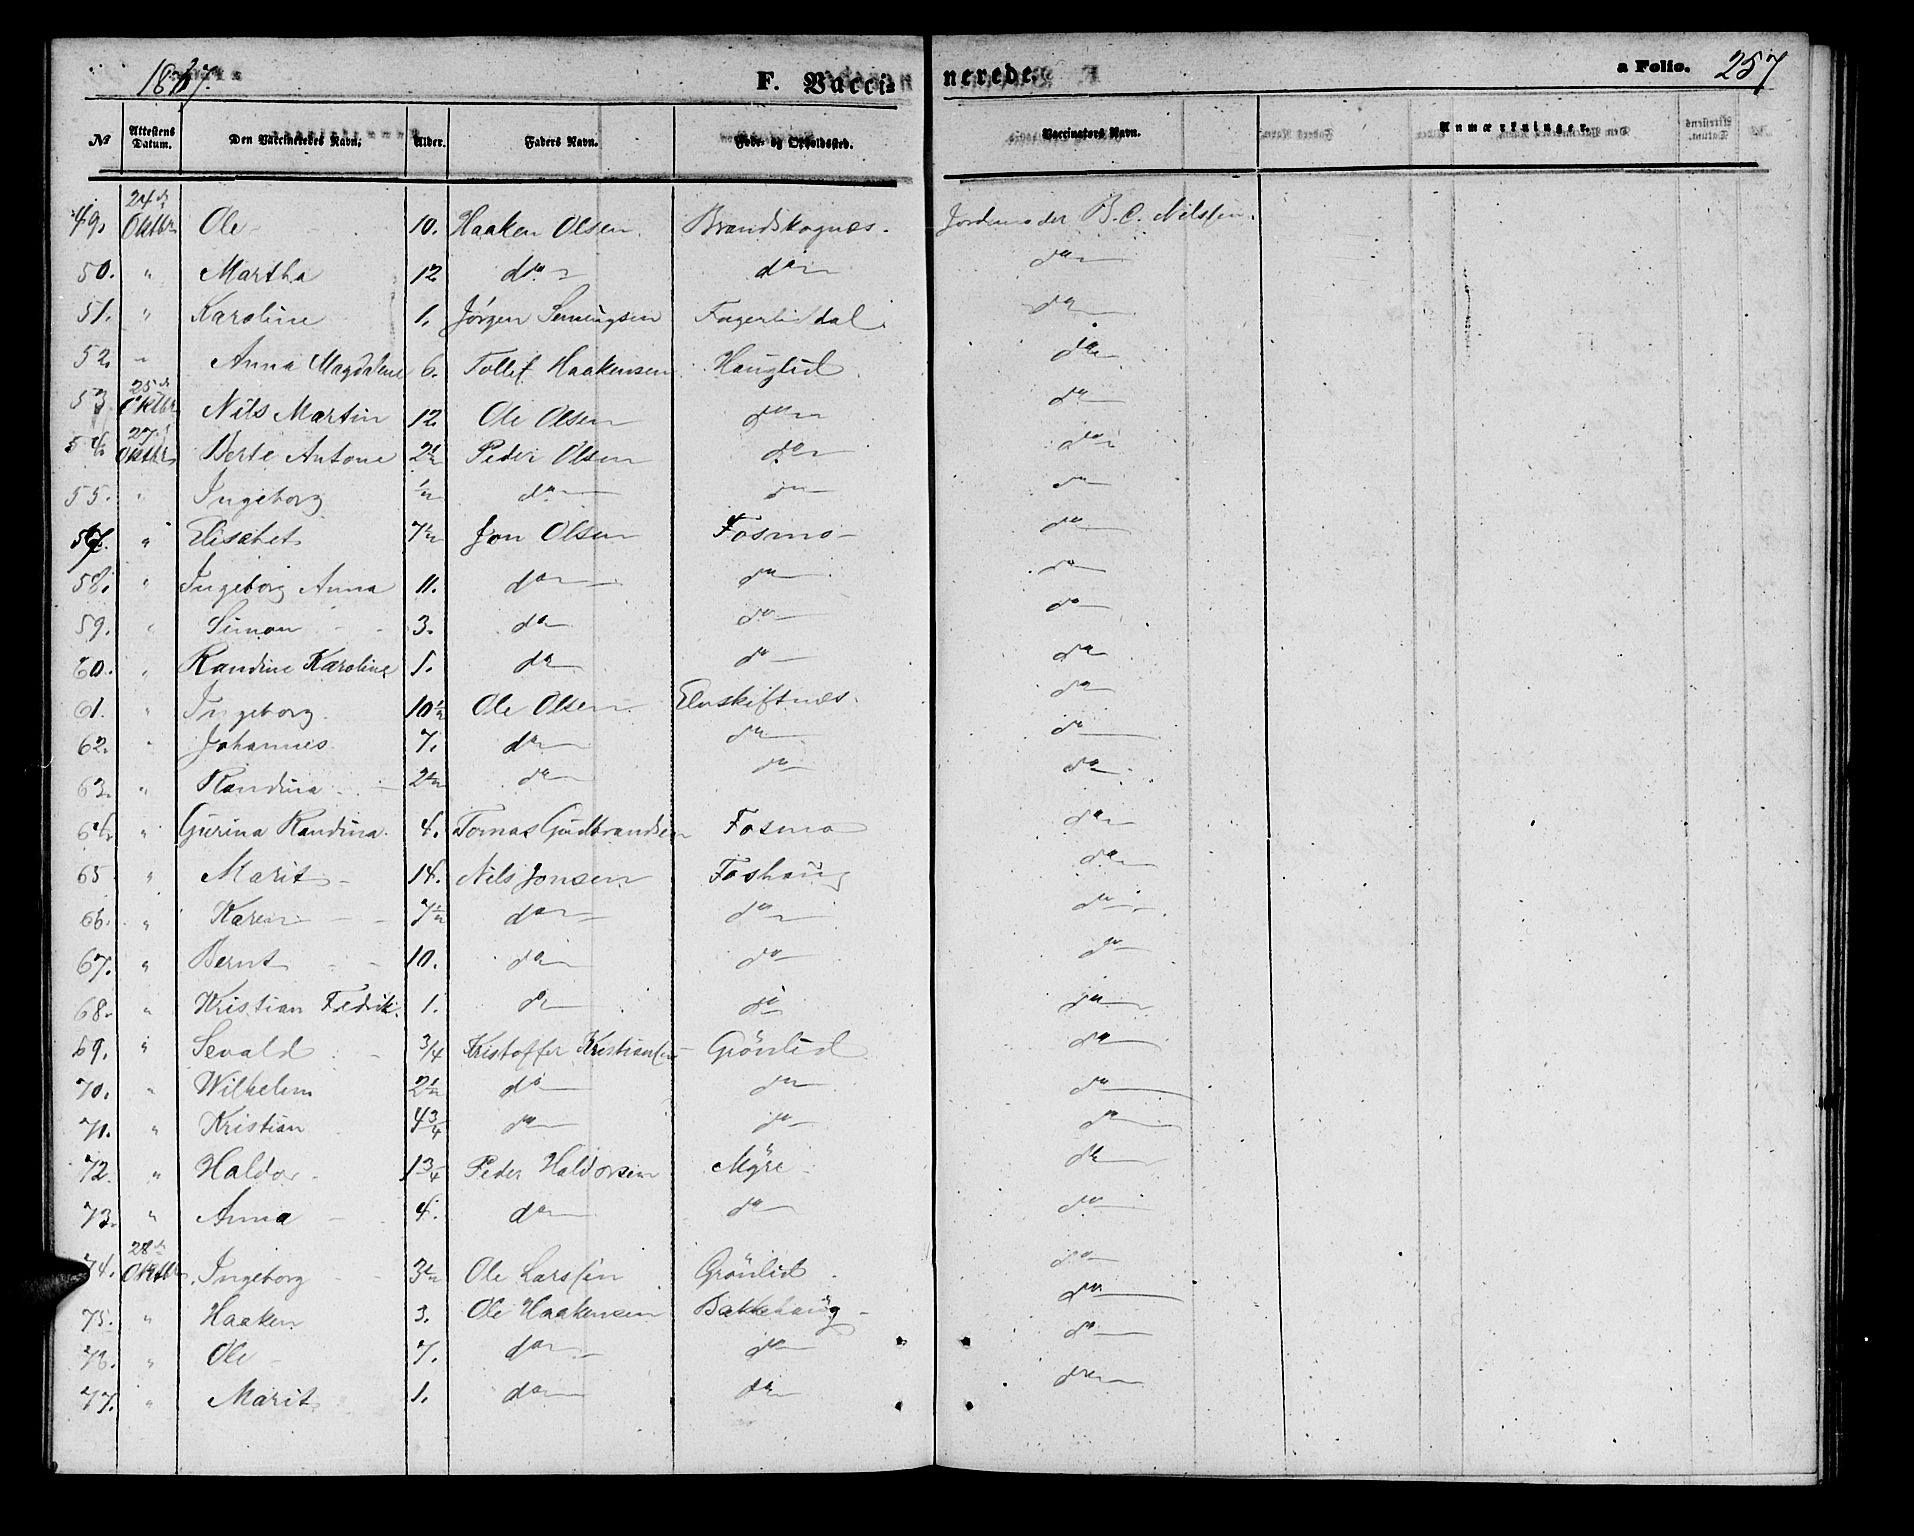 F. Vaccinerede. a Folio. 257
№ Attestens Datum. Den Vaccineredes Navn. Alder. Faders Navn. Føde- og Opholdssted. Vaccinators Navn. Anmærkninger.
49. 24de Oktbr Ole 10. Haaken Olsen Brandskognæs. Jordemoder B. C. Nilssen.
50. " Martha 12 do do do
51. " Karoline 1. Jørgen Semingsen Fagerlidal do
52. " Anna Magdalene 6. Tollef Haakensen Hauglid do
53 25de Oktbr Nils Martin 12. Ole Olsen do do
54. 27de Oktbr Berte Antone 2½ Peder Olsen do do
55. " Ingeborg ½ do do do
57. " Elisabet 7½ Jon Olsen Fosmo do
58. " Ingeborg Anna 11. do do do
59. " Simon 3. do do do
60. " Randine Karoline 1. do do do
61. " Ingeborg 10½ Ole Olsen Elvskiftnæs. do
62. " Johannes 7. do do do
63. " Randina 2½ do do do
64. " Gurina Randina. 4. Tomas Gudbrandsen Fosmo do
65 " Marit 14. Nils Jonsen Foshaug do
66. " Karen 7½ do do do
67. " Bernt 10. do do do
68. " Kristian Fedrik. 1. do do do
69. " Sevald 3/4 Kristoffer Kristianssen Grönlid do
70. " Wilhelm 2½ do do do
71. " Kristian 4¾ do do do
72. " Haldor 1¾ Peder Haldorsen Myre do
73. " Anna 4. do do do
74. 28de Oktbr Ingeborg 3½ Ole Larssen Grönlid do
75. " Haaken 3. Ole Haakensen Bakkehaug do
76. " Ole 7. do do do
77. " Marit 1. do do do